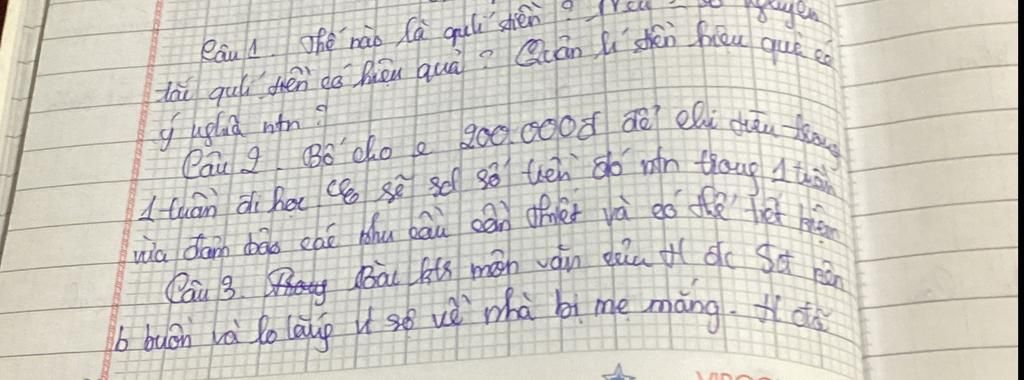 Câu 1. Thế nào là qulí tiền ?
tắc qulí tiền có hiệu quả ? Quản lí tiền hiệu quả có
ý nghĩa ntn ?
Câu 2. Bố cho e 200.000đ để chi tiêu trong
1 tuần đi học. e sẽ sd số tiền đó ntn trong 1 tuần
vừa đảm bảo các nhu cầu cần thiết và có thể tiết kiệm
Câu 3. Bài kts môn văn của H dc 5đ nên
b buồn và lo lắng H sợ về nhà bị mẹ mắng. H đã